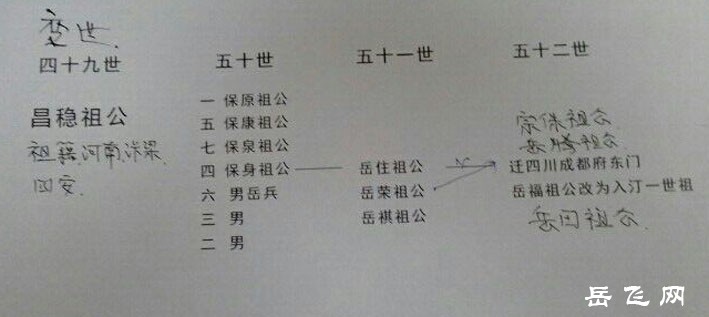 变世
四十九世 五十世 五十一世 五十二世
一 保原祖公
昌稳祖公 五 保康祖公 宗保祖公
七 保泉祖公 岳腾祖公
祖籍河南
四 保身祖公 岳住祖公 迁四川成都府东门
六 男岳兵 岳荣祖公 岳福祖公改为入汀一世祖
三 男 岳祺祖公 岳田祖公
二 男
岳飞网